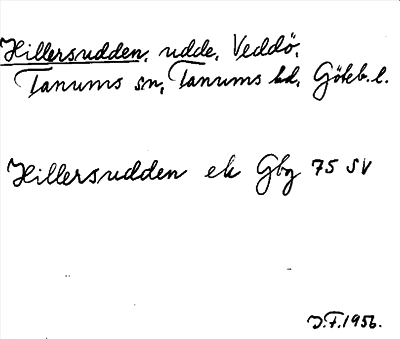 Hillersudden, udde, Veddö,
Tanums sn, Tanums hd, Göteb. l.
Hillersudden ek Gbg 75 SV
J.F. 1956.